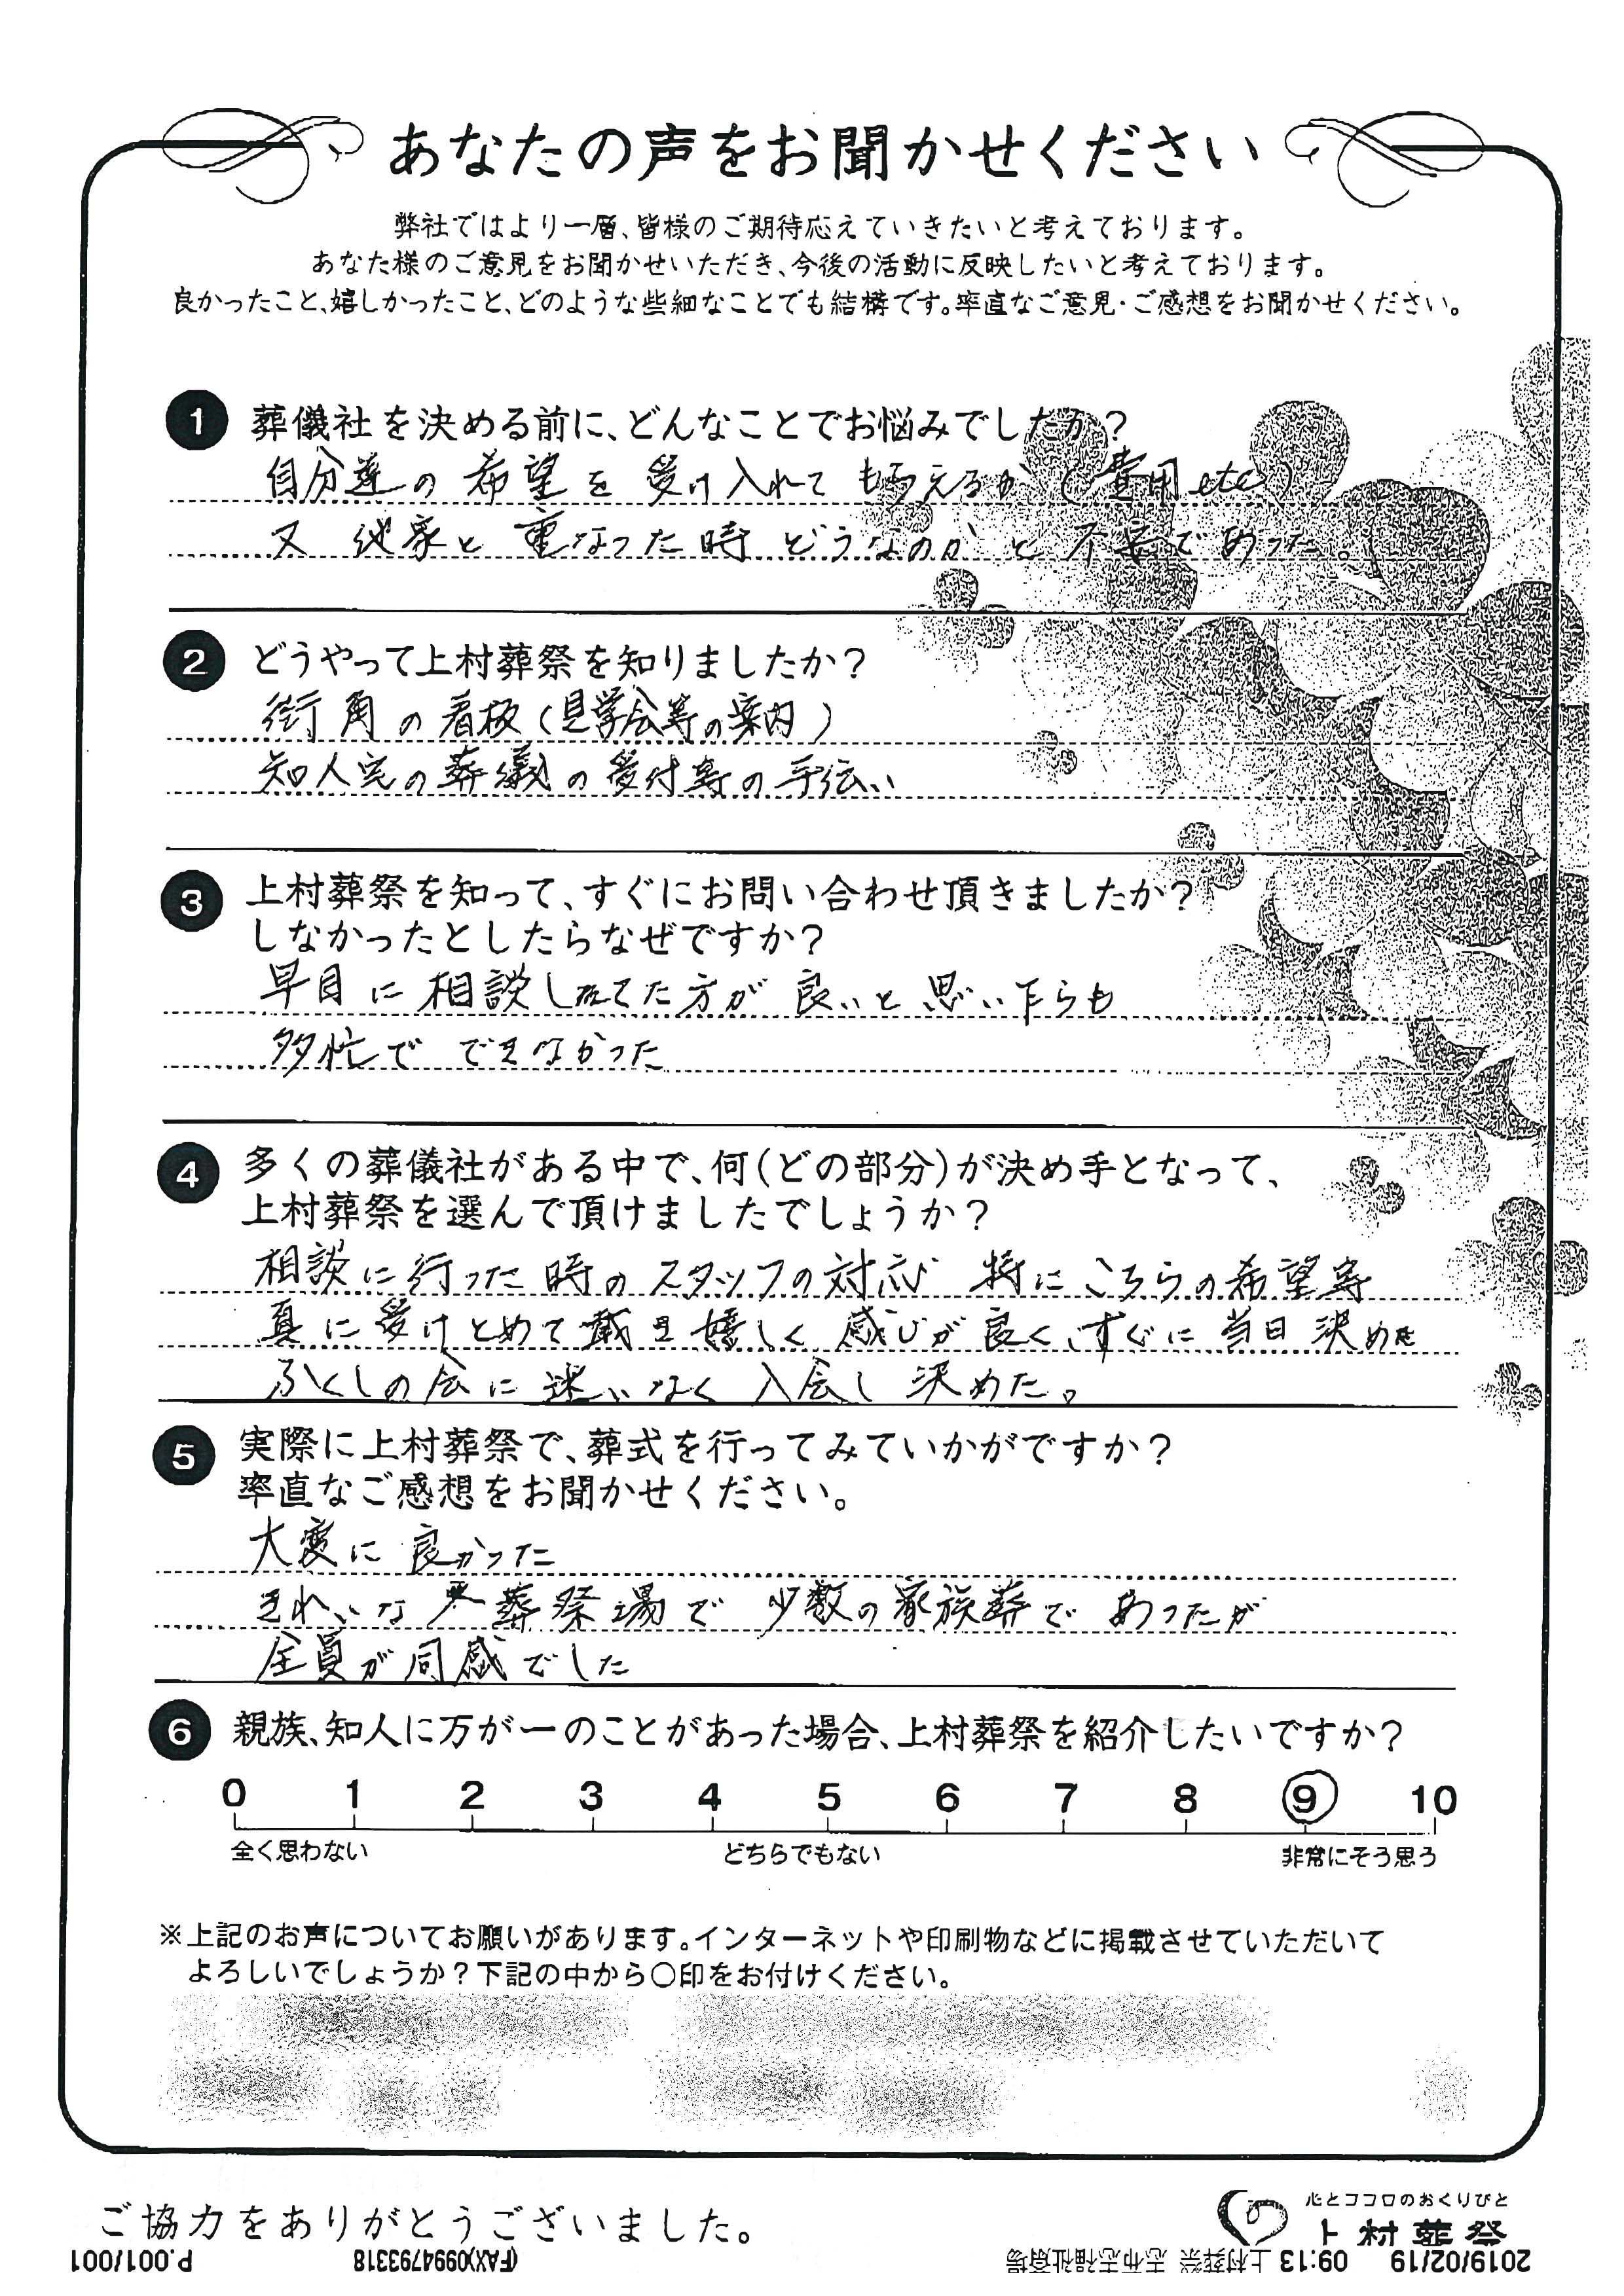 あなたの声をお聞かせください
弊社ではより一層、皆様のご期待応えていきたいと考えております。
あなた様のご意見をお聞かせいただき、今後の活動に反映したいと考えております。
良かったこと、嬉しかったこと、どのような些細なことでも結構です。率直なご意見・ご感想をお聞かせください。
1 葬儀社を決める前に、どんなことでお悩みでしたか？
自分達の希望を受け入れてもらえるか（費用etc）
又 他家と重なった時どうなのかと不安であった。
2 どうやって上村葬祭を知りましたか？
街角の看板（見学会等の案内）
知人宅の葬儀の受付等の手伝い
3 上村葬祭を知って、すぐにお問い合わせ頂きましたか？
しなかったとしたらなぜですか？
早目に相談し てた方が良いと思い乍らも
多忙で できなかった
4 多くの葬儀社がある中で、何（どの部分）が決め手となって、
上村葬祭を選んで頂けましたでしょうか？
相談に行った時のスタッフの対応 特にこちらの希望等
真に受けとめて戴き嬉しく感じが良く、すぐに当日決めた
ふくしの会に迷いなく入会し決めた。
5 実際に上村葬祭で、葬式を行ってみていかがですか？
率直なご感想をお聞かせください。
大変に良かった
きれいな 葬祭場で少数の家族葬であったが
全員が同感でした
6 親族、知人に万が一のことがあった場合、上村葬祭を紹介したいですか？
0 1 2 3 4 5 6 7 8 9 10
全く思わない どちらでもない 非常にそう思う
※上記のお声についてお願いがあります。インターネットや印刷物などに掲載させていただいて
よろしいでしょうか？下記の中から○印をお付けください。
ご協力をありがとうございました。
心とココロのおくりびと
上村葬祭
2019/02/19 09:13 上村葬祭 志布志福祉斎場 (FAX)0994793318 P.001/001